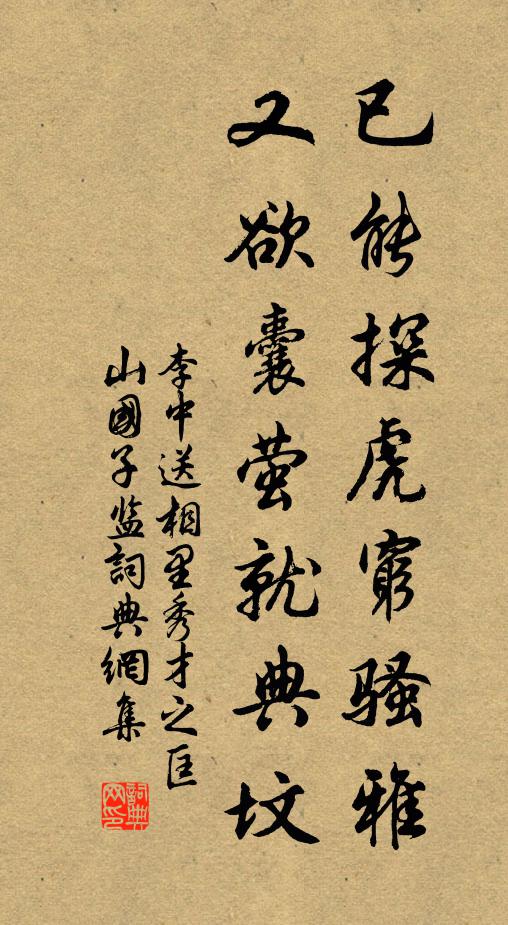 已能探虎窮騷雅
又欲囊萤就典坟
李中送相里秀才之匡
山國子监詞典網集
詞典
网印